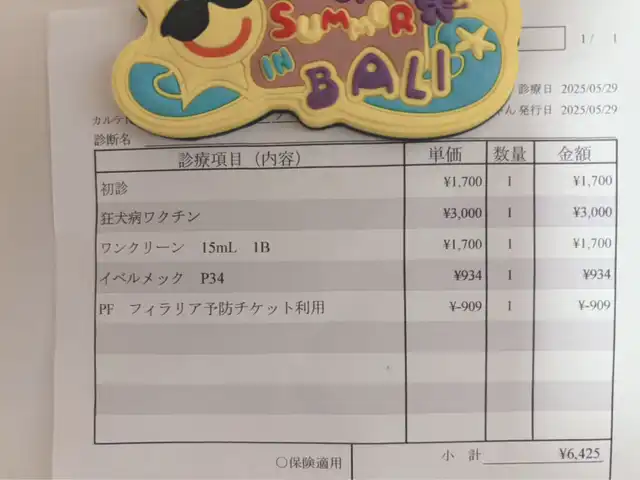 SUMMER
IN
BALI
1 / 1
診療日 2025/05/29
ゃん 発行日 2025/05/29
カルテ
診断名
診療項目（内容） 単価 数量 金額
初診 ¥1,700 1 ¥1,700
狂犬病ワクチン ¥3,000 1 ¥3,000
ワンクリーン 15mL 1B ¥1,700 1 ¥1,700
イベルメック P34 ¥934 1 ¥934
PF フィラリア予防チケット利用 ¥-909 1 ¥-909
〇保険適用 小 計 ¥6,425